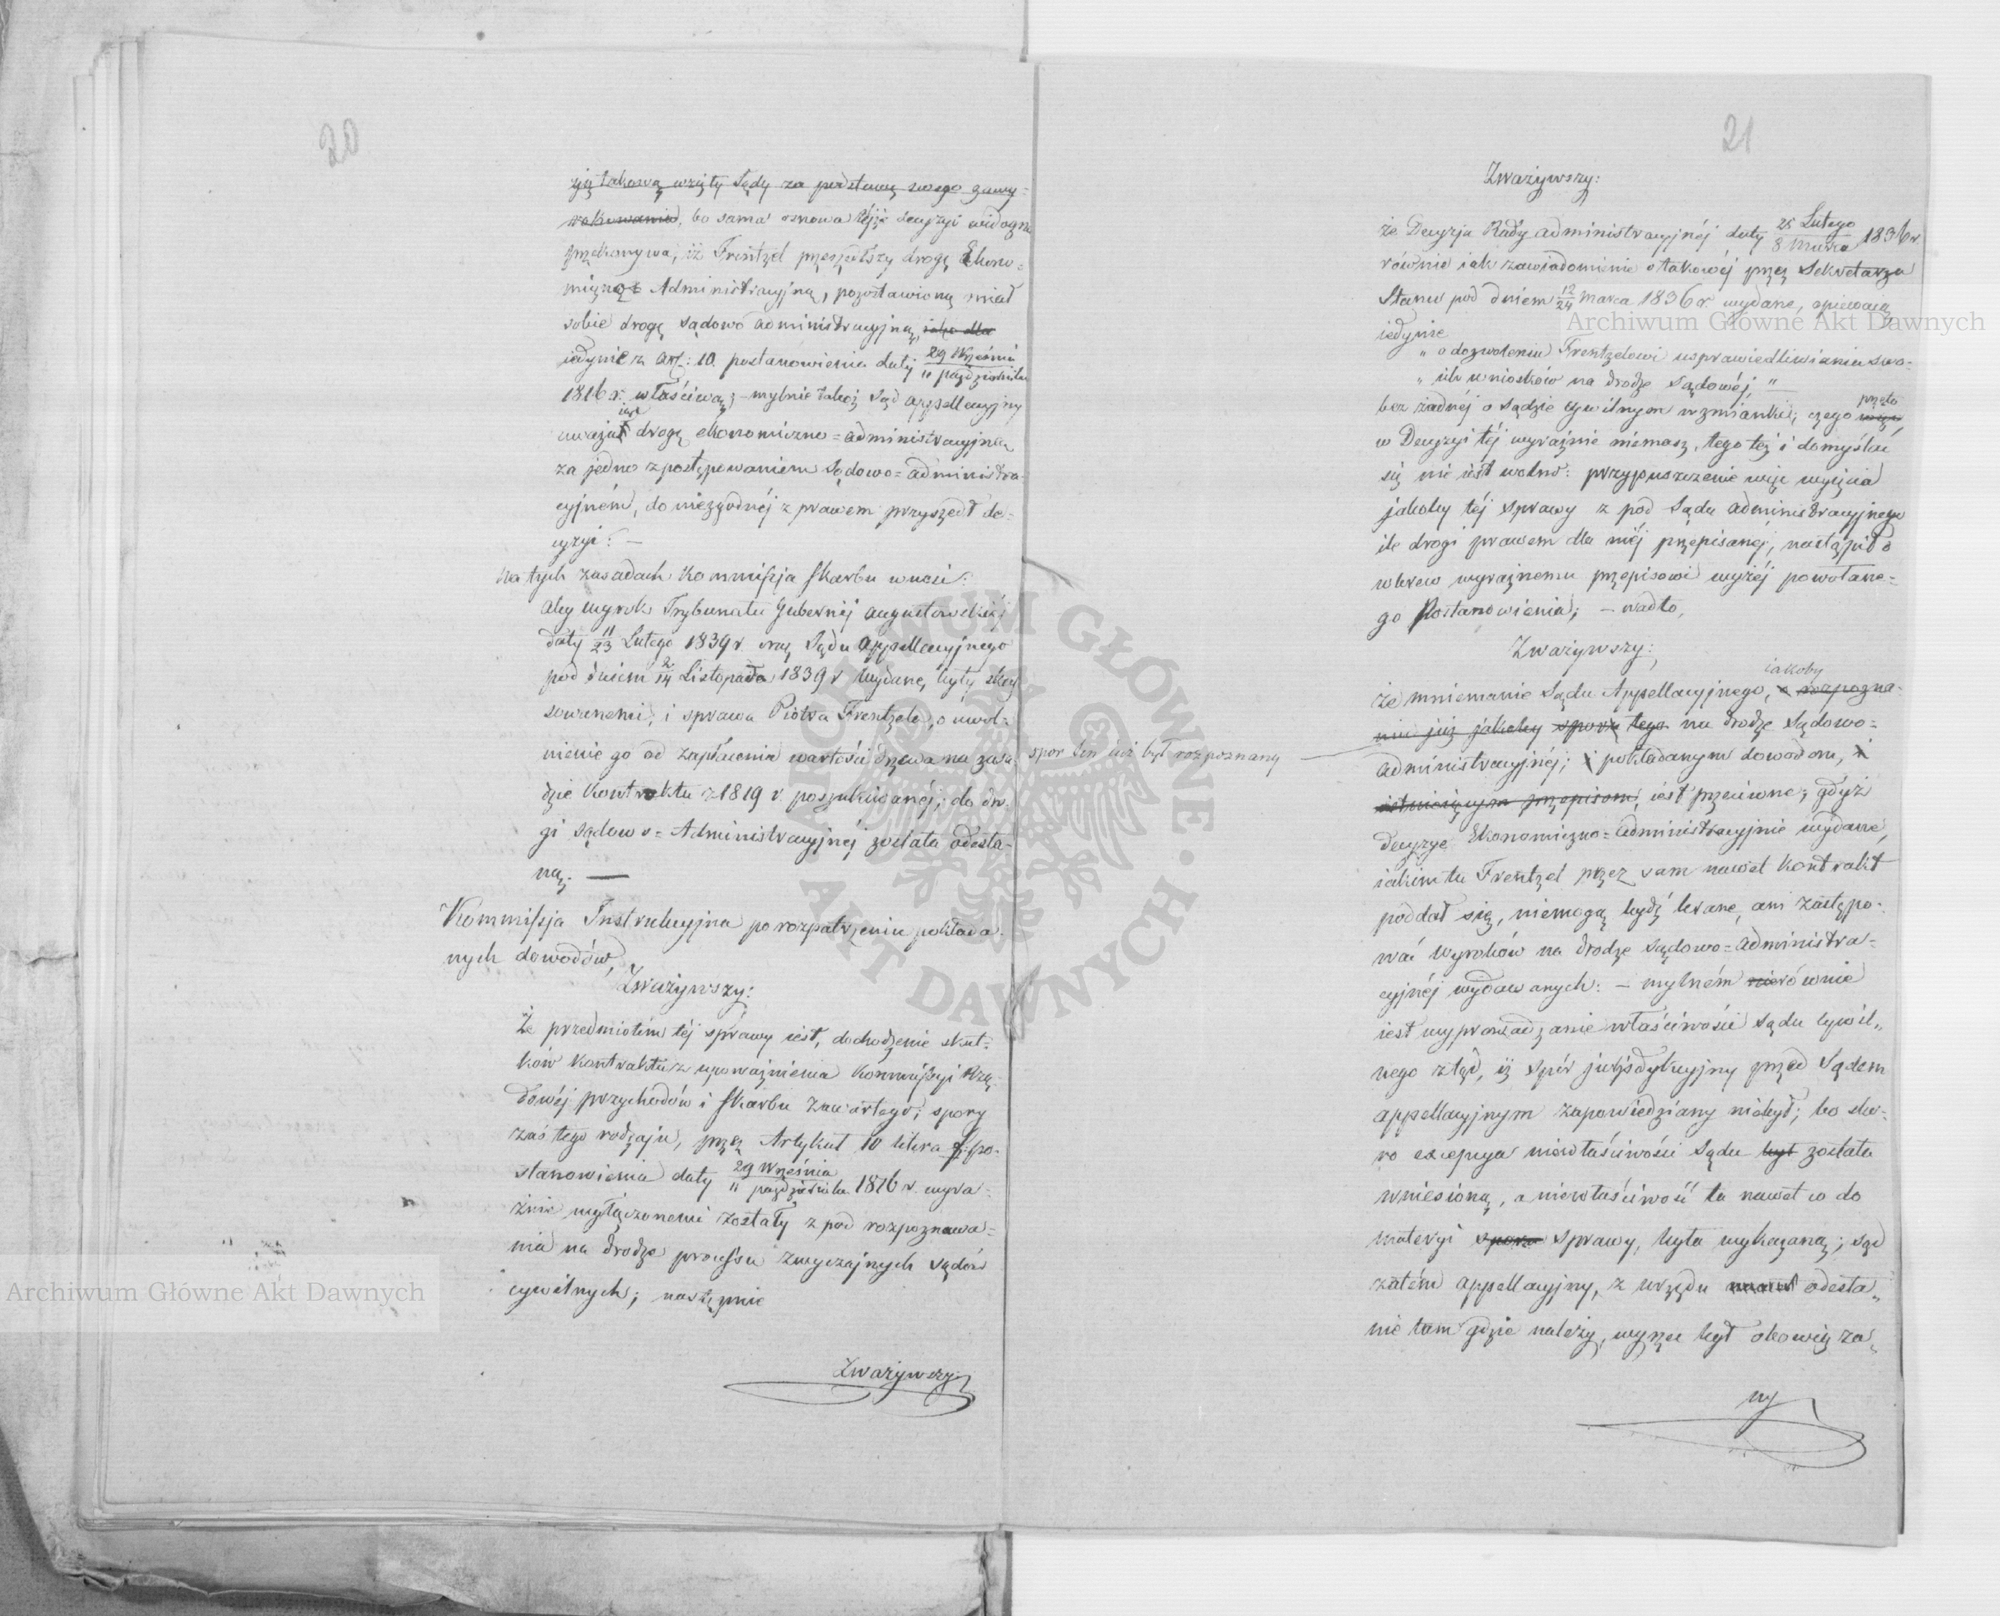 20
zją takową wzięły Sądy za podstawę swego zawy-
rokowania, bo sama osnowa téjże decyzyi widocznie
przekonywa, iż Frentzel przeszedłszy drogę Ekono-
miczno Administracyjną, pozostawioną miał
sobie drogę sądowo administracyjną, jako dla
jedynie z Art: 10 postanowienia daty 29 Września
11 października
1816 r. właściwą; – mylnie także Sąd Appellacyjny
uważał drogę ekonomiczno-administracyjną
za jedno z postępowaniem Sądowo-administra-
cyjném, do niezgodnéj z prawem przyszedł de-
cyzyi: —
Na tych zasadach Kommissja Skarbu wnosi:
aby wyrok Trybunału Gubernij Augustowskiéj
daty 11/23 Lutego 1839 r. oraz Sądu Appellacyjnego
pod dniem 2/14 Listopada 1839 r. wydane, były ska-
sowanemi, i sprawa Piotra Frentzela, o uwol-
nienie go od zapłacenia wartości drzewa na zasa
dzie Kontraktu z 1819 r. poszukiwanéj, do dro-
gi sądowo-Administracyjnéj została odesła-
ną. —
Kommissja Instrukcyjna po rozpatrzeniu pokłada-
nych dowodów,
Zważywszy:
Że przedmiotem téj sprawy jest, dochodzenie skut-
ków kontraktu z upoważnienia Kommissyi Rzą-
dowéj przychodów i Skarbu zawartego; spory
zaś tego rodzaju, przez Artykuł 10 litera f. po-
stanowienia daty 29 Września
11 października 1816 r. wyra-
źnie wyłączonemi zostały z pod rozpoznawa-
nia na drodze processu zwyczajnych sądów
cywilnych; następnie
Zważywszy
21
Zważywszy:
że Decyzja Rady administracyjnéj daty 25 Lutego
8 Marca 1836 r
równie jak zawiadomienie o takowéj przez Sekretarza
Stanu pod dniem 12/24 marca 1836 r. wydane, opiewają
jedynie
„ o dozwoleniu Frentzelowi usprawiedliwienia swo-
„ ich wniosków na drodze Sądowéj, „ —
bez żadnéj o sądzie cywilnym wzmianki; czego przeto
w Decyzyi téj wyraźnie niemasz, tego też i domyślać
się nie jest wolno: przypuszczenie więc wyjęcia
jakoby téj sprawy z pod Sądu administracyjnego
ile drogi prawem dla niéj przepisanéj, nastąpiło
wbrew wyraźnemu przepisowi wyżéj powołane-
go Postanowienia; – nadto,
Zważywszy:
że mniemanie Sądu Appellacyjnego, jakoby rozpozna-
nie już jakoby sporu tego na drodze Sądowo-
spor ten już był rozpoznany
administracyjnéj; pokładanym dowodom,
istniejącym przepisom, jest przeciwne; gdyż
decyzye Ekonomiczno-administracyjnie wydane,
jakim tu Frentzel przez sam nawet kontrakt
poddał się, niemogą bydź brane, ani zastępo-
wać wyroków na drodze sądowo-administra-
cyjnéj wydawanych: – mylném równie
jest wyprowadzanie właściwości sądu cywil„
nego ztąd, iż spór jurisdykcyjny przed Sądem
appellacyjnym zapowiedziany niebył; bo sko-
ro excepcya niewłaściwości Sądu był została
wniesioną, a niewłaściwość ta nawet co do
materyi sporu sprawy, była wykazaną; sąd
zatém appellacyjny, z urzędu odesła„
nie tam gdzie należy, wyrzec był obowiąza„
ny
Archiwum Główne Akt Dawnych
Archiwum Główne Akt Dawnych
ARCHIWUM GŁÓWNE · AKT DAWNYCH ·